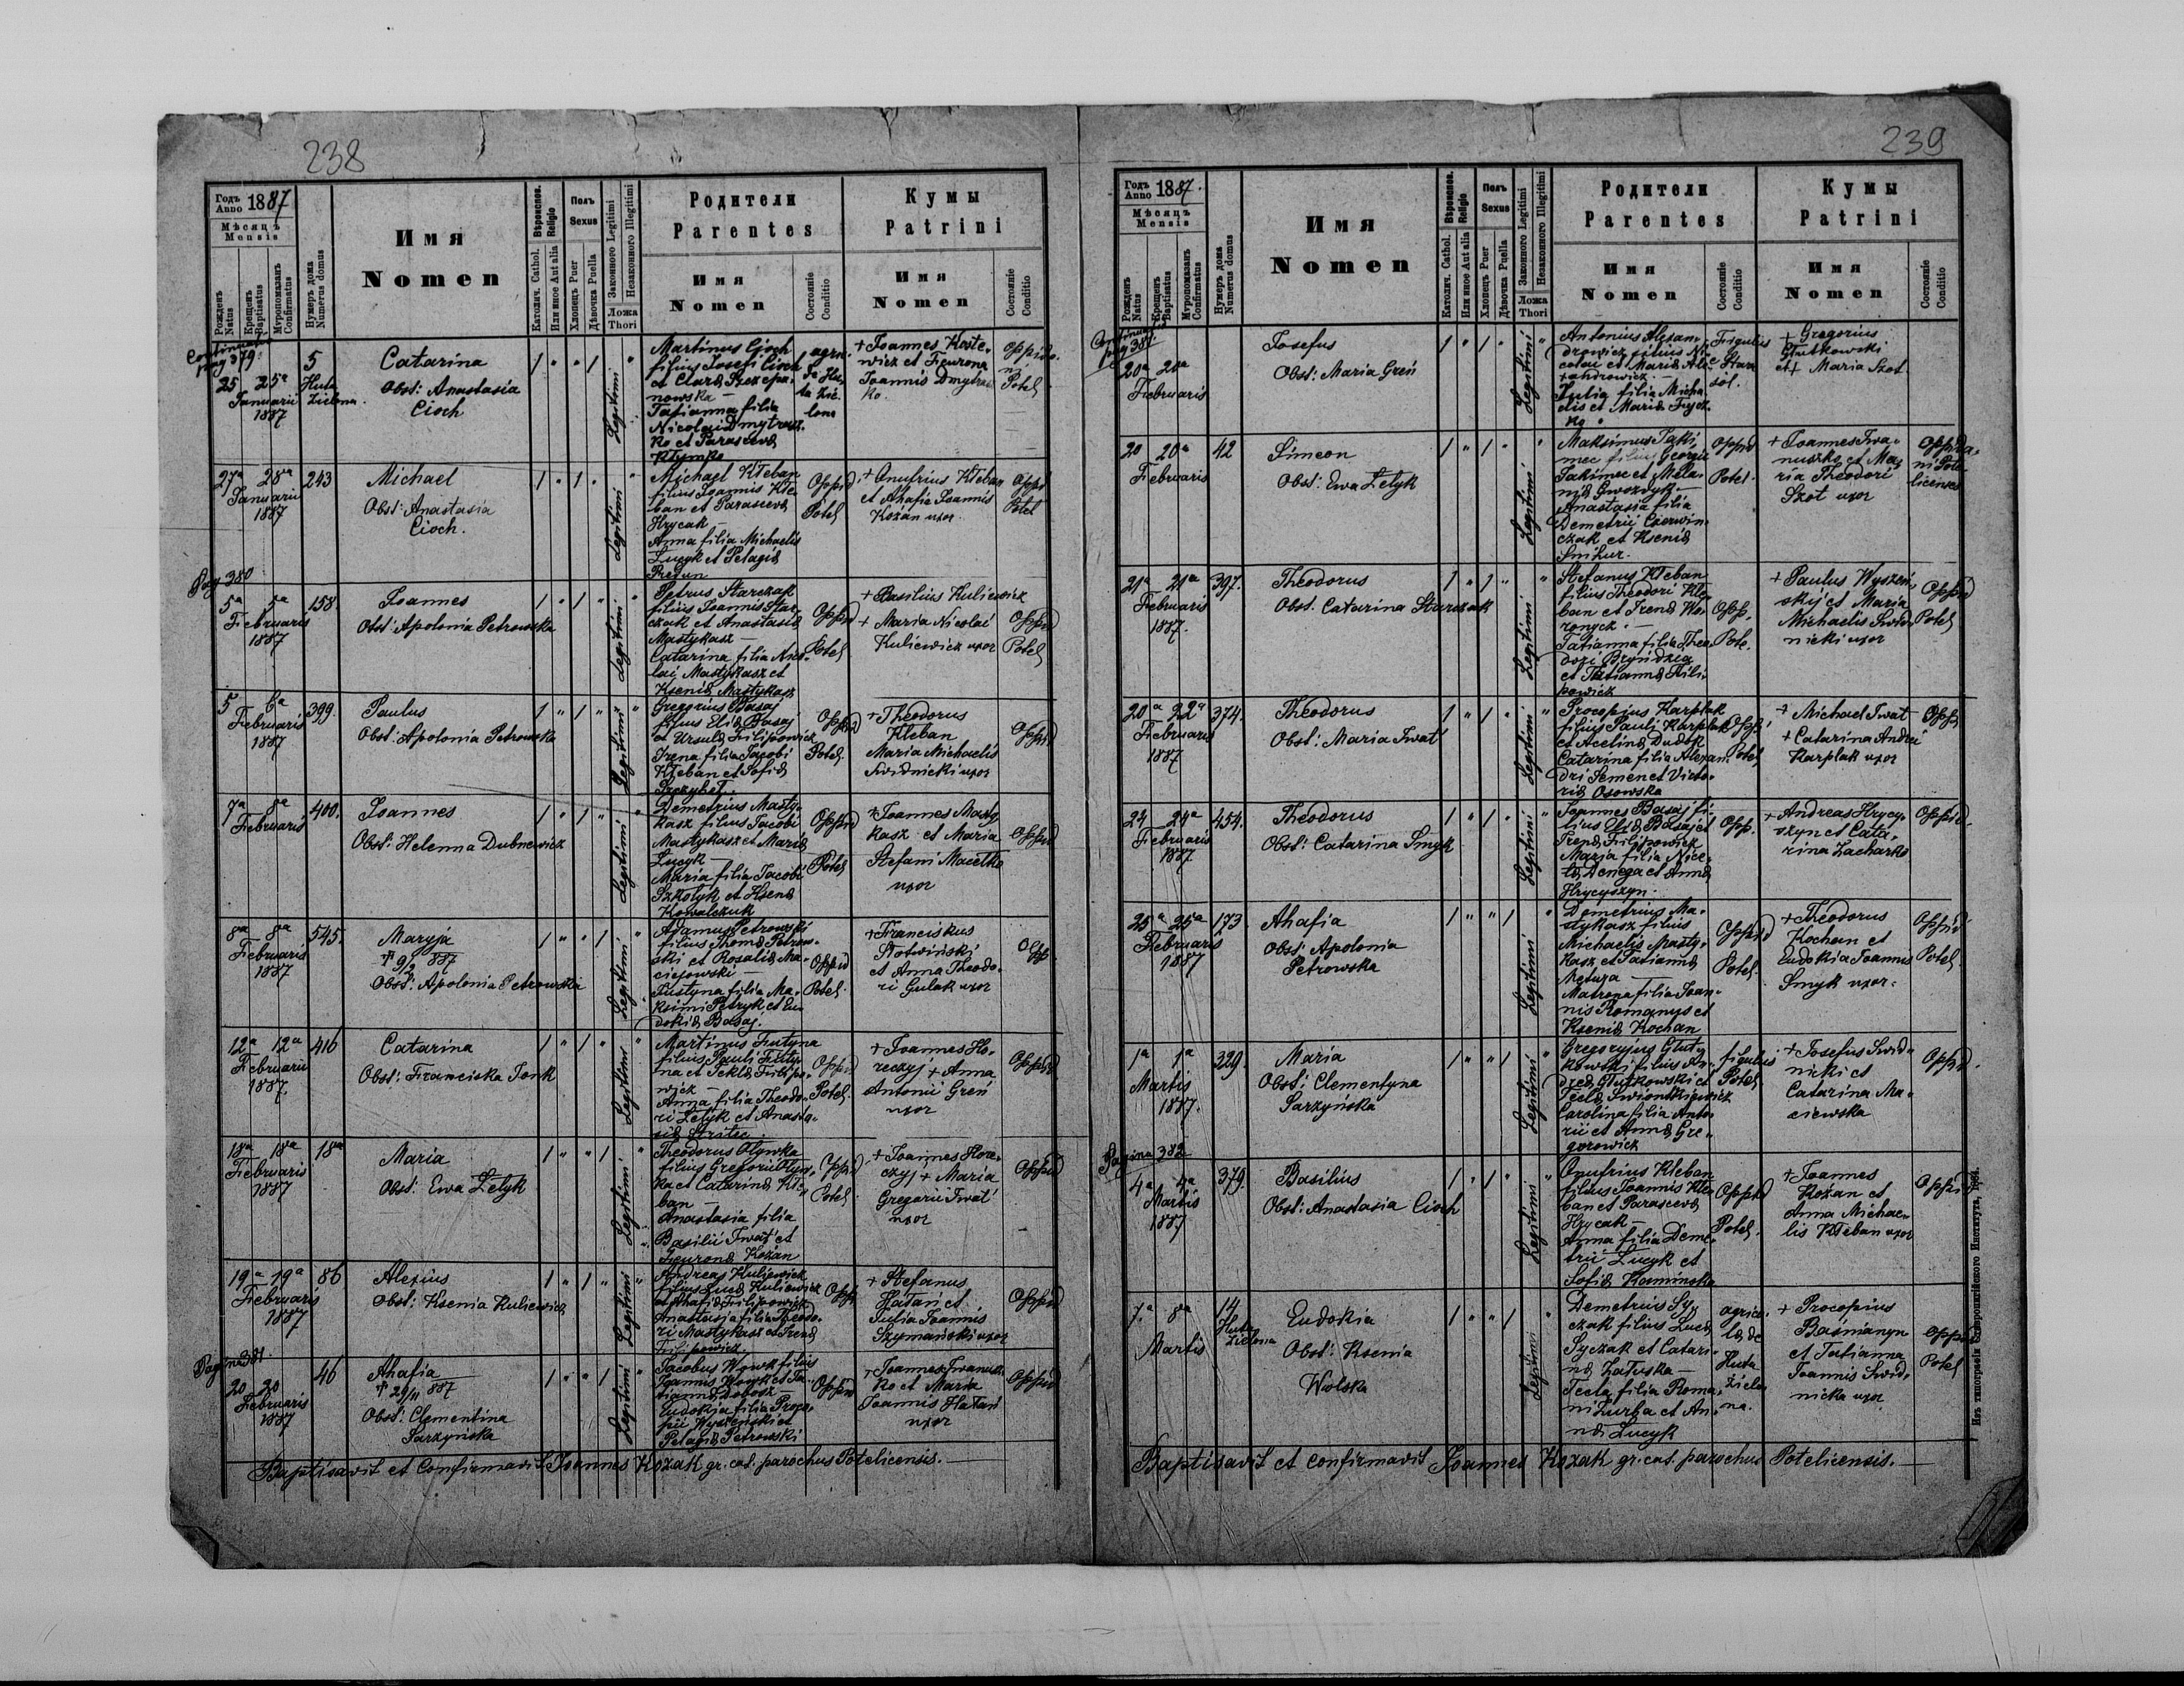 238
Годъ Anno 1887
Мѣсяцъ Mensis
Рожденъ Natus
Крещенъ Baptisatus
Муропомазанъ Confirmatus
Нумеръ дома Numerus domus
Имя Nomen
Вѣроиспов. Religio
Католич. Cathol.
Или иное Aut alia
Полъ Sexus
Хлопецъ Puer
Дѣвочка Puella
Законного Legitimi
Незаконного Illegitimi
Ложа Thori
Родители Parentes
Имя Nomen
Состоянiе Conditio
Кумы Patrini
Имя Nomen
Состоянiе Conditio
pag 379.
25 25a
Januarii
1887
5
Huta
Zielona
Catarina
Obst: Anastasia
Cioch
Legitimi
Martinus Cioch
filius Josefi Cioch
et Clarae Szczepa-
nowska —
Tatianna filia
Nicolai Dmytrasz-
ko et Parascevae
Klymko
agri.
la Hu-
ta Zie-
lona
+ Joannes Koste-
wicz et Feurona
Joannis Dmytrasz-
ko.
Oppida-
ni
Potel
27a 28a
Januarii
1887
243
Michael
Obst: Anastasia
Cioch.
Legitimi
Michael Kleban
filius Joannis Kle-
ban et Parascevae
Hrycak —
Anna filia Michaelis
Lucyk et Pelagiae
Oppid
Potel
+ Onufrius Kleban
et Ahafia Joannis
Kożan uxor.
Oppid
Potel
Pag 380
5a 5a
Februaris
1887
158.
Joannes
Obst: Apolonia Petrowska
Legitimi
Petrus Starczak
filius Joannis Star-
czak et Anastasiae
Mastykasz —
Catarina filia Nico-
lai Mastykasz et
Kseniae Mastykasz
Oppid
Potel
+ Basilius Kuliewicz
+ Maria Nicolai
Kuliewicz uxor
Oppid
Potel
5 6a
Februaris
1887
399.
Paulus
Obst: Apolonia Petrowska
Legitimi
Gregorius Basaj
filius Eliae Basaj
et Ursulae Filipowicz
Irena filia Jacobi
Kleban et Sofiae
Oppid
Potel.
+ Theodorus
Kleban
Maria Michaelis
Swidnicki uxor
Oppid
7a 8a
Februaris
400.
Joannes
Obst: Helenna Dubnewicz
Legitimi
Demetrius Masty-
kasz filius Jacobi
Mastykasz et Mariae
Lucyk —
Maria filia Jacobi
Szkolyk et Ksenae
Kowalczuk
Oppid
Potel
+ Joannes Masty-
kasz et Maria
Stefani Macełko
uxor
Oppid
8a 8a
Februaris
1887
545.
Maryja
† 9/2 887
Obst: Apolonia Petrowska
Legitimi
Adamus Petrowski
filius Thomae Petrow-
ski et Rosaliae Ma-
ciejowski —
Justyna filia Ma-
ksimi Petryk et Eu-
dokiae Basaj.
Oppid
Potel.
+ Franciskus
Słotwiński
et Anna Theodo-
ri Gulak uxor
Opp.
12a 12a
Februarii
1887.
416
Catarina
Obst: Franciska Tonk
Legitimi
Martinus Futyna
filius Pauli Futy-
na et Teklae Filipo-
wicz —
Anna filia Theodo-
ri Letyk et Anasta-
siae
Oppid
Potel.
+ Joannes Ho-
reczyj + Anna
Antonii Greń
uxor
Oppid
18a 18a
Februaris
1887
18a
Maria
Obst: Ewa Letyk
Legitimi
Theodorus Olywka
filius Gregorii Olyw-
ka et Catarinae Kle-
ban
Anastasia filia
Basilii Iwat et
Feuronae Kożan
Oppid
Potel.
+ Joannes Hore-
czyj + Maria
Gregorii Iwat
uxor
Oppid
19a 19a
Februaris
1887
86
Alexius
Obst: Ksenia Kuliewicz
Legitimi
Andreas Kuliewicz
filius Lucae Kuliewicz
et Ahafiae Filipowicz
Anastasia filia Theodo-
ri Mastykasz et Irenae
Filipowicz.
Opp.
+ Stefanus
Hatan et
Julia Joannis
Szymański uxor
Oppid
Pagina 381.
20 20
Februaris
1887
46
Ahafia
† 887
Obst: Clementina
Sarzyńska
Legitimi
Jacobus Wowk filius
Joannis Wowk et Ta-
tiannae Dobosz —
Eudokia filia Proco-
pii Wyszeński et
Pelagiae Petrowski
Oppid
+ Joannes Iwanusz-
ko et Maria
Joannis Hatan
uxor
Oppid
Baptisavit et Confirmavit Joannes Kozak gr. cat. parochus Potelicensis. —
239
Годъ Anno 1887.
Мѣсяцъ Mensis
Рожденъ Natus
Крещенъ Baptisatus
Муропомазанъ Confirmatus
Нумеръ дома Numerus domus
Имя Nomen
Вѣроиспов. Religio
Католич. Cathol.
Или иное Aut alia
Полъ Sexus
Хлопецъ Puer
Дѣвочка Puella
Законного Legitimi
Незаконного Illegitimi
Ложа Thori
Родители Parentes
Имя Nomen
Состоянiе Conditio
Кумы Patrini
Имя Nomen
Состоянiе Conditio
pag 381.
20a 20a
Februaris
Josefus
Obst: Maria Greń
Legitimi
Antonius Alexan-
drowicz filius Ni-
colai et Mariae Ale-
xandrowicz —
Julia filia Micha-
elis et Mariae Frycz-
ko.
Figulus
e Stara
sól.
+ Gregorius
Glutkowski
et + Maria Szot.
20 20a
Februaris
42
Simeon
Obst: Ewa Letyk
Legitimi
Maksimus Jaki-
mec filius Georgii
Jakimec et Mela-
niae Gwozdyk —
Anastasia filia
Demetrii Czerwin-
czak et Kseniae
Sniżur.
Oppid
Potel.
+ Joannes Iwa-
nuszko et Ma-
ria Theodori
Szot uxor
Oppida-
ni Pote-
licenses
21a 21a
Februaris
1887.
397.
Theodorus
Obst. Catarina Starczak
Legitimi
Stefanus Kleban
filius Theodori Kle-
ban et Irenae Wo-
ronycz. —
Tatianna filia Theo-
dozi Bryndzea
et Tatiannae Fili-
powicz
Opp.
Pote.
+ Paulus Wyszeń-
skij et Maria
Michaelis Swid-
nicki uxor
Oppid
Potel
20a 22a
Februaris
1887
374.
Theodorus
Obst: Maria Iwat
Legitimi
Procopius Karplak
filius Pauli Karplak
et Acelinae Dudok
Catarina filia Alexan-
dri Semen et Victo-
riae Osowska
Opp.
Potel
+ Michael Iwat
+ Catarina Andrei
Karplak uxor
Opp.
24 24a
Februaris
1887
454.
Theodorus
Obst: Catarina Smyk
Legitimi
Joannes Basaj fi-
lius Eliae Basaj et
Irenae Filipowicz
Maria filia Nice-
tae Denega et Annae
Hrycyszyn.
Opp.
+ Andreas Hrycy-
szyn et Cata-
rina Zacharko
Oppid.
25a 25a
Februaris
1887
173
Ahafia
Obst: Apolonia
Petrowska
Legitimi
Demetrius Ma-
stykasz filius
Michaelis Masty-
kasz et Tatiannae
Metuza —
Matrona filia Joan-
nis Romanys et
Kseniae Kochan
Oppid
Potel.
+ Theodorus
Kochan et
Eudokia Joannis
Smyk uxor.
Oppid
Potel
1a 1a
Martis
1887.
329.
Maria
Obst: Clementyna
Sarzyńska
Legitimi
Gregoryjus Glut-
kowski filius An-
dreae Glutkowski et
Teclae Swiontkiewicz
Carolina filia Anto-
nii et Annae Gre-
gorowicz
figulus
Potel
+ Josefus Swid-
nicki et
Catarina Ma-
ciewska
Oppid.
Pagina 382
4a 4a
Martis
1887
379.
Basilius
Obst: Anastasia Cioch
Legitimi
Onufrius Kleban
filius Joannis Kle-
ban et Parascevae
Hrycak —
Anna filia Deme-
trii Lucyk et
Sofiae Kaminska
Oppid
Potel.
+ Joannes
Kożan et
Anna Michae-
lis Kleban uxor
Oppid
7a 8a
Martis
14
Huta
Zielona
Eudokia
Obst: Ksenia
Wolska
Legitimi
Demetrius Sy-
czak filius Lucae
Syczak et Catari-
nae Zaluska —
Tecla filia Roma-
ni Żurba et An-
nae Lucyk
agrico-
la de
Huta
Zielo-
na.
+ Procopius
Baśmanyn
et Tatianna
Joannis Swid-
nicka uxor
Oppid
Potel
Baptisavit et confirmavit Joannes Kozak gr. cat. parochus Potelicensis. —
Изъ типографiи Ставропигiйского Института, 1884.